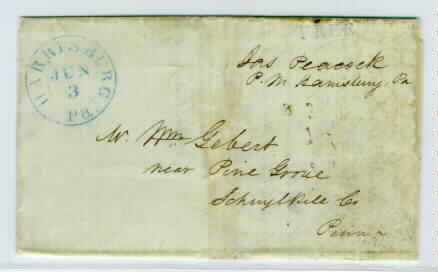 HARRISBURG Pa
JUN
3
FREE
Jas Peacock
P. M. Harrisburg. Pa
Mr. Wm Gebert
near Pine Grove
Schuylkill Co
Penna